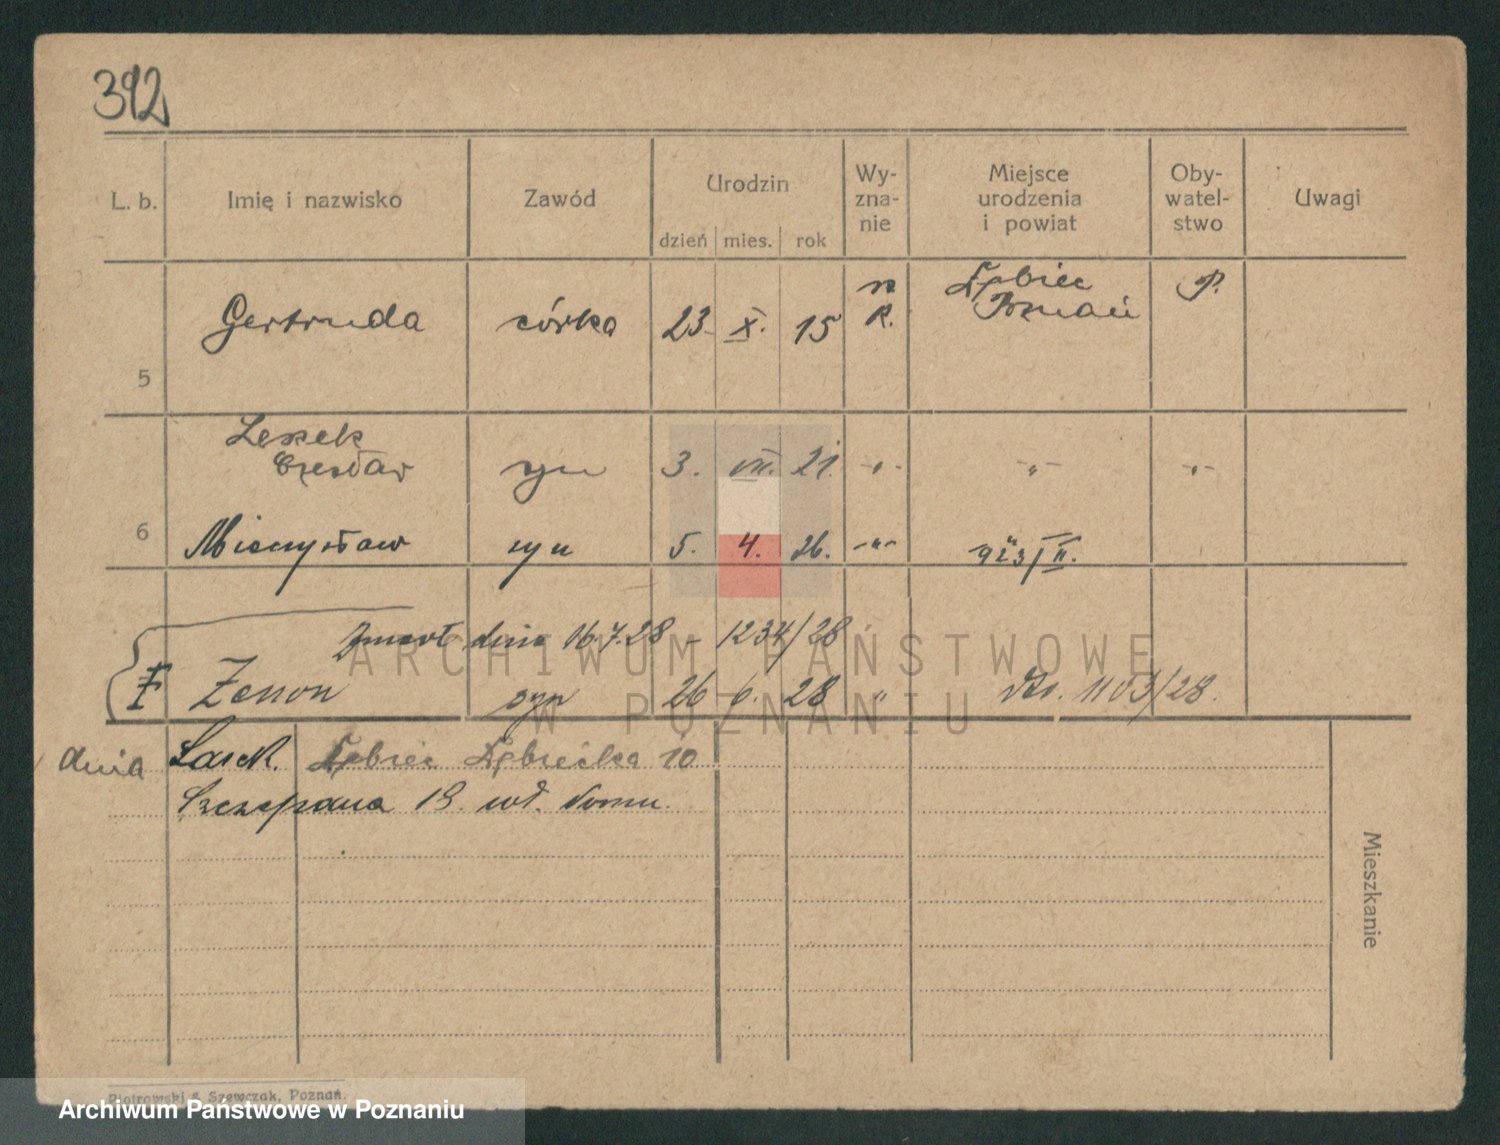 392
L. b. Imię i nazwisko Zawód Urodzin dzień mies. rok Wy-zna-nie Miejsce urodzenia i powiat Oby-watel-stwo Uwagi
5 Gertruda córka 23. X. 15 R. Poznań P.
Leszek
Czesław syn 3. VII. 21. -"- -"- -"-
6 Mieczysław syn 5. 4. 26. -"- 923/II.
Zmarł dnia 16.7.28 - 1234/28
Zenon syn 26 6. 28 " 1103/28.
ARCHIWUM PAŃSTWOWE
W POZNANIU
dnia 10
Szczepana 19. wł. domu.
Mieszkanie
Piotrowski & Szewczak, Poznań.
Archiwum Państwowe w Poznaniu